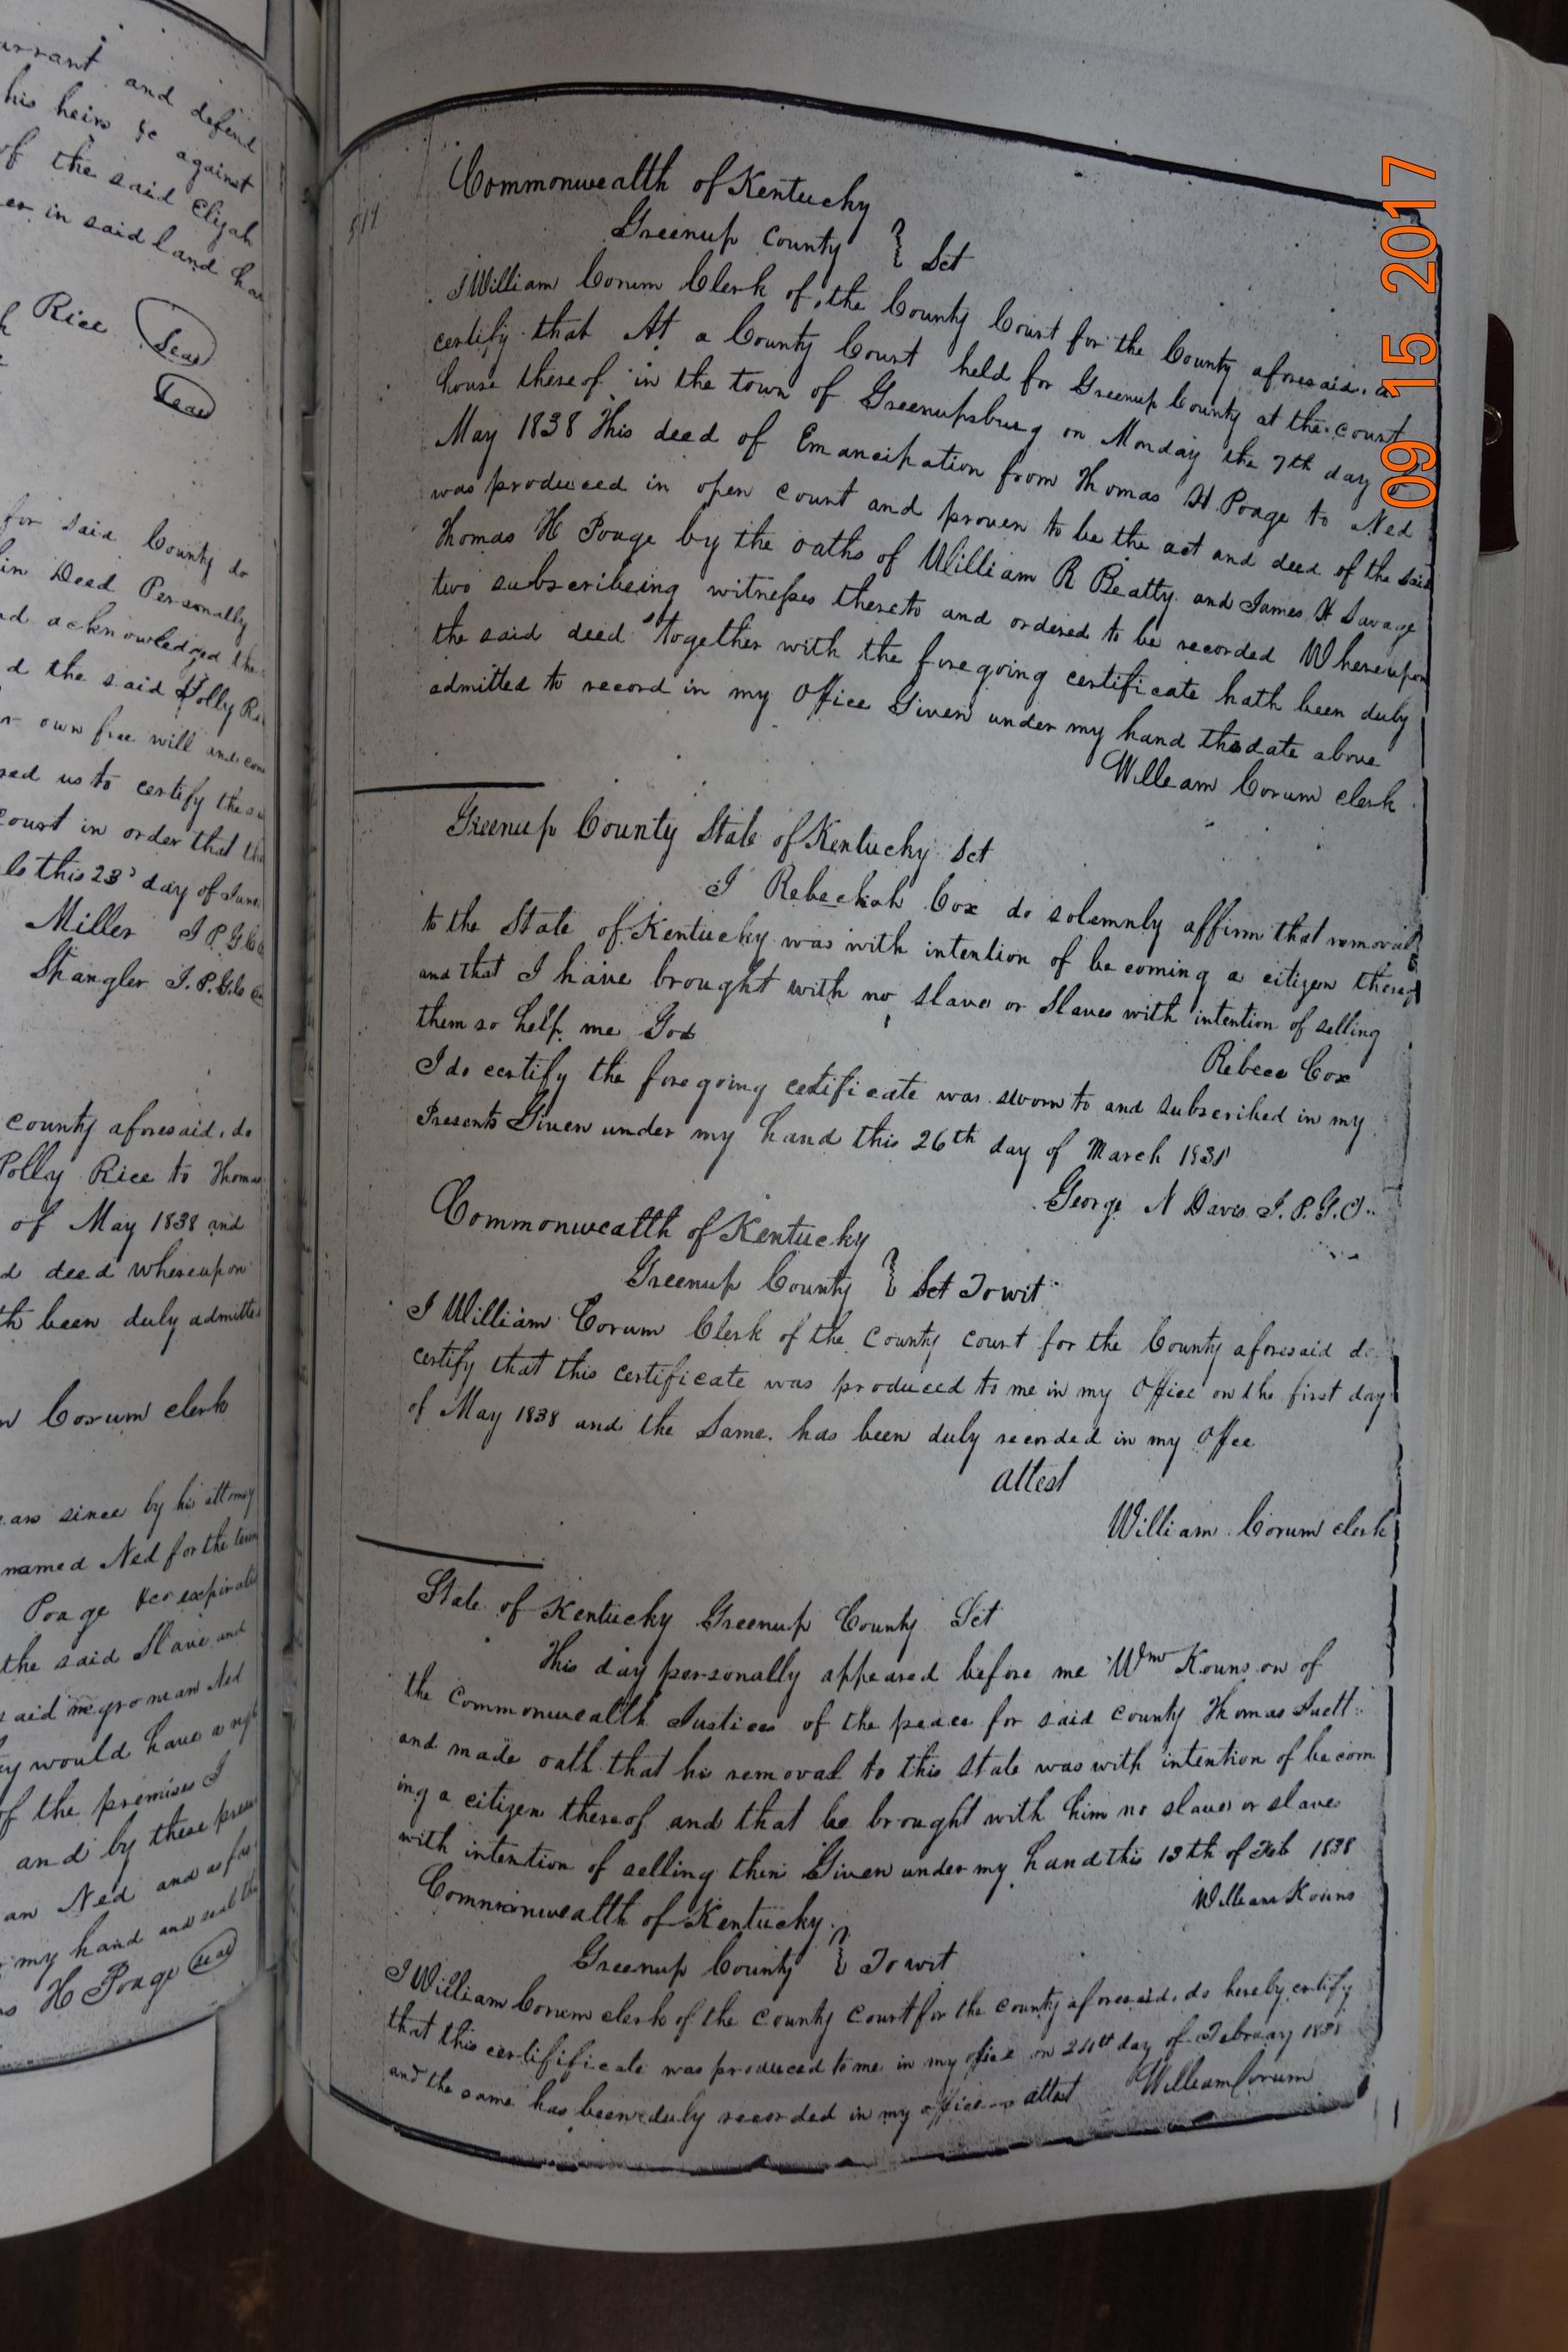 arrant and defend
his heirs &c against
of the said Elijah
er in said land
Rice Seal
Seal
for said County do
in Deed Personally
d acknowledged the
d the said Polly
own free will and
red us to certify the
court in order that
this 23d day of June
Miller J P G C
Spangler J. P. G.
county aforesaid, do
Polly Rice to Thomas
of May 1838 and
d deed whereupon
th been duly admitted
Corum clerk
ears since by his attorney
named Ned for the term
Poage &c expiration
the said Slave and
said negro man Ned
ey would have a
of the premises I
and by these
an Ned and as
my hand and seal
H Poage Seal
Commonwealth of Kentucky
Greenup County } Sct
I William Corum Clerk of the County Court for the County aforesaid,
certify that At a County Court held for Greenup County at the court
house thereof in the town of Greenupsburg on Monday the 7th day
May 1838 This deed of Emancipation from Thomas H Poage to Ned
was produced in open court and proven to be the act and deed of the said
Thomas H Poage by the oaths of William R Beatty and James H Savage
two subscribeing witnesses thereto and ordered to be recorded Whereupon
the said deed together with the foregoing certificate hath been duly
admitted to record in my Office Given under my hand the date above
William Corum clerk
Greenup County State of Kentucky Sct
I Rebeckah Cox do solemnly affirm that removal
to the State of Kentucky was with intention of becoming a citizen thereof
and that I have brought with no slave or Slaves with intention of selling
them so help me God
Rebecc Cox
I do certify the foregoing certificate was sworn to and subscribed in my
Presents Given under my hand this 26th day of March 1838
George N Davis J. P. G. C.
Commonwealth of Kentucky
Greenup County } Sct Towit
I William Corum Clerk of the County court for the County aforesaid do
certify that this certificate was produced to me in my Office on the first day
of May 1838 and the Same has been duly recorded in my Offee
attest
William Corum clerk
State of Kentucky Greenup County Sct
This day personally appeared before me Wm Kouns on of
the commonwealth Justices of the peace for said county Thomas
and made oath that his removal to this State was with intention of becom
ing a citizen thereof and that he brought with him no slave or slaves
with intention of selling them Given under my hand this 13th of Feb 1838
William Kouns
Commonwealth of Kentucky
Greenup County } Towit
I William Corum clerk of the county court for the county aforesaid, do hereby certify
that this certifificate was produced to me in my office on 24th day of February 1838
and the same has been duly recorded in my office attest William Corum
09 15 2017